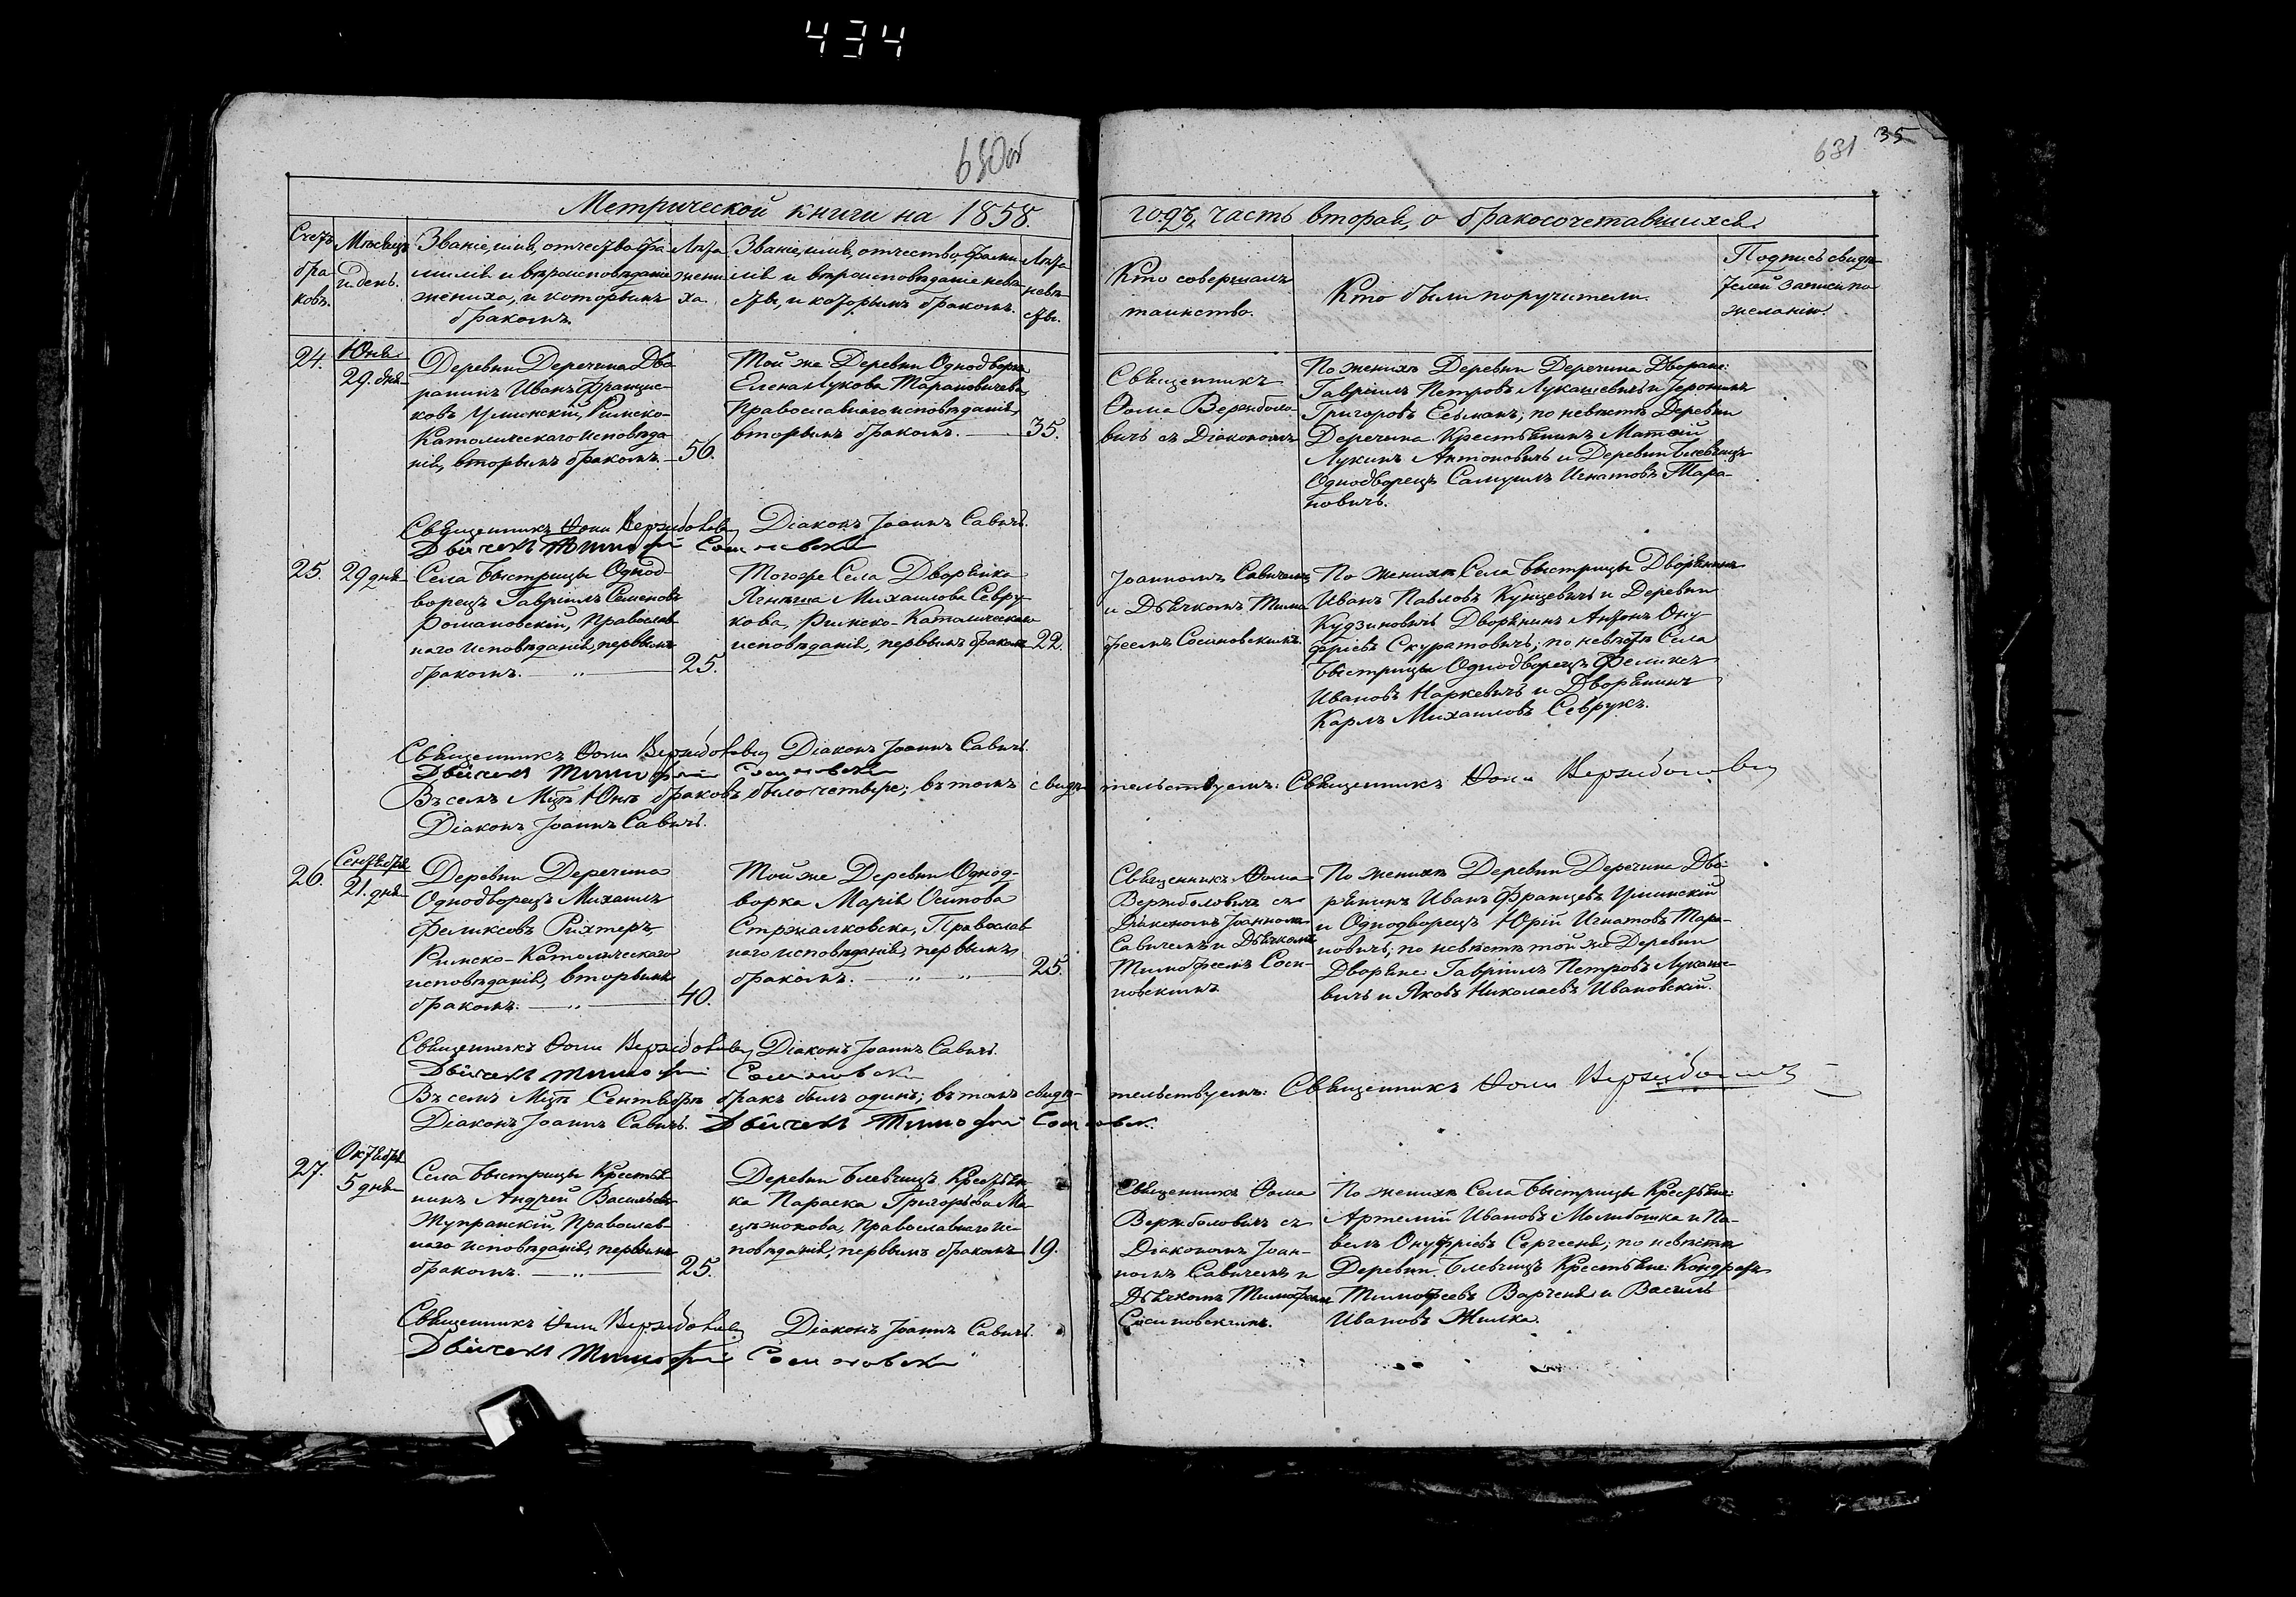 434
630об
631 35
Метрической книги на 1858.
годъ, часть вторая, о бракосочетавшихся.
Счетъ
бра
ковъ.
Мѣсяцъ
и день.
Званіе, имя, отчество, фа
милія и вѣроисповѣданіе
жениха, и которымъ
бракомъ.
Лѣта
жени
ха.
Званіе, имя, отчество, фами
лія и вѣроисповѣданіе невѣ
сты, и которымъ бракомъ.
Лѣта
невѣ
сты.
Кто совершалъ
таинство.
Кто были поручители.
Подпись свидѣ
телей записи по
желанію.
24.
Юня.
29. дня
Деревни Деречина Дво
рянинъ Иванъ Францис-
ковъ Улинскій, Римско-
Католическаго исповѣда
нія, вторымъ бракомъ.
56.
Той же Деревни Однодворка
Елена Лукова Тарановичева
Православнаго исповѣданія,
вторымъ бракомъ.
35.
Священникъ
Ѳома Вержболо-
вичъ съ Діакономъ
По женихѣ Деревни Деречина Дворяне:
Гавріилъ Петровъ Лукашевичъ и Іеронимъ
Григоровъ Есьманъ; по невѣстѣ Деревни
Деречина Крестьянинъ Матѳій
Лукинъ Антоновичъ и Деревни Блевчицъ
Однодворецъ Самуилъ Игнатовъ Тара-
новичъ.
Священникъ Ѳома Вержболович Діаконъ Іоаннъ Савичъ.
Дьячекъ Тимофей Сосиновский
25.
29 дня
Села Быстрицы Однод-
ворецъ Гавріилъ Семеновъ
Романовскій, Православ
наго исповѣданія, первымъ
бракомъ.
25.
Тогоже Села Дворянка
Ягнѣша Михаилова Севру-
кова, Римско-Католическаго
исповѣданія, первымъ бракомъ
22.
Іоанномъ Савичемъ
и Дьячкомъ Тимо
феемъ Сосиновскимъ.
По женихѣ Села Быстрицы Дворянинъ
Иванъ Павловъ Кунцевичъ и Деревни
Кудзиновичъ Дворянинъ Антонъ Ону-
фріевъ Скуратовичъ; по невѣстѣ Села
Быстрицы Однодворецъ Феликсъ
Ивановъ Наркевичъ и Дворянинъ
Карлъ Михаиловъ Севрукъ.
Священникъ Ѳома Вержболович Діаконъ Іоаннъ Савичъ.
Дьячекъ Тимофей Сосиновский
Въ семъ Мцѣ Юнѣ браковъ было четыре; въ томъ свидѣ
тельствуемъ: Священникъ Ѳома Вержболович
Діаконъ Іоаннъ Савичъ.
26.
Сентября
21. дня
Деревни Деречина
Однодворецъ Михаилъ
Феликсовъ Рихтеръ,
Римско-Католическаго
исповѣданія, вторымъ
бракомъ.
40.
Той же Деревни Однод-
ворка Марія Осипова
Стржалковска, Православ
наго исповѣданія, первымъ
бракомъ.
25.
Священникъ Ѳома
Вержболовичъ съ
Діакономъ Іоанномъ
Савичемъ и Дьячкомъ
Тимофеемъ Соси-
новскимъ
По женихѣ Деревни Деречина Дво-
рянинъ Иванъ Францевъ Улинскій
и Однодворецъ Юрій Игнатовъ Тара-
новичъ; по невѣстѣ той же Деревни
Дворяне Гавріилъ Петровъ Лукаше-
вичъ и Яковъ Николаевъ Ивановскій.
Священникъ Ѳома Вержболович Діаконъ Іоаннъ Савичъ.
Дьячекъ Тимофей Сосиновский
Въ семъ Мцѣ Сентябрѣ бракъ былъ одинъ; въ томъ свидѣ-
тельствуемъ: Священникъ Ѳома Вержболович
Діаконъ Іоаннъ Савичъ. Дьячекъ Тимофей Сосиновск.
27.
Октября
5 дня
Села Быстрицы Крестья
нинъ Андрей Васильевъ
Жупранскій, Православ-
наго исповѣданія, первымъ
бракомъ.
25.
Деревни Блевчицъ Крестьян
ка Параска Григорьева
Православнаго ис-
повѣданія, первымъ бракомъ
19.
Священникъ Ѳома
Вержболовичъ съ
Діакономъ Іоан-
номъ Савичемъ и
Дьячкомъ Тимофеемъ
Сосиновскимъ.
По женихѣ Села Быстрицы Крестьяне:
Артемій Ивановъ Молибошка и Па-
велъ Онуфріевъ Сергееня; по невѣстѣ
Деревни Блевчицъ Крестьяне: Кондратъ
Тимофеевъ Варченя и Василь
Ивановъ Жилка.
Священникъ Ѳома Вержболович Діаконъ Іоаннъ Савичъ.
Дьячекъ Тимофей Сосиновский